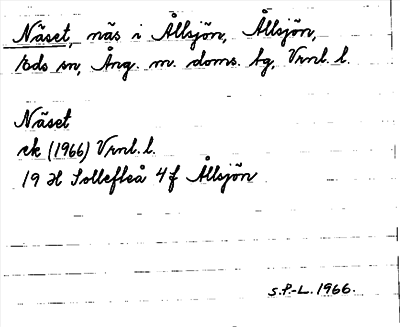 Näset, näs i Ållsjön, Ållsjön,
Eds sn, Ång. m. doms. tg, Vrnl. l.
Näset
ek (1966) Vrnl. l.
19 H Sollefteå 4 f Ållsjön
S.P.-L. 1966.